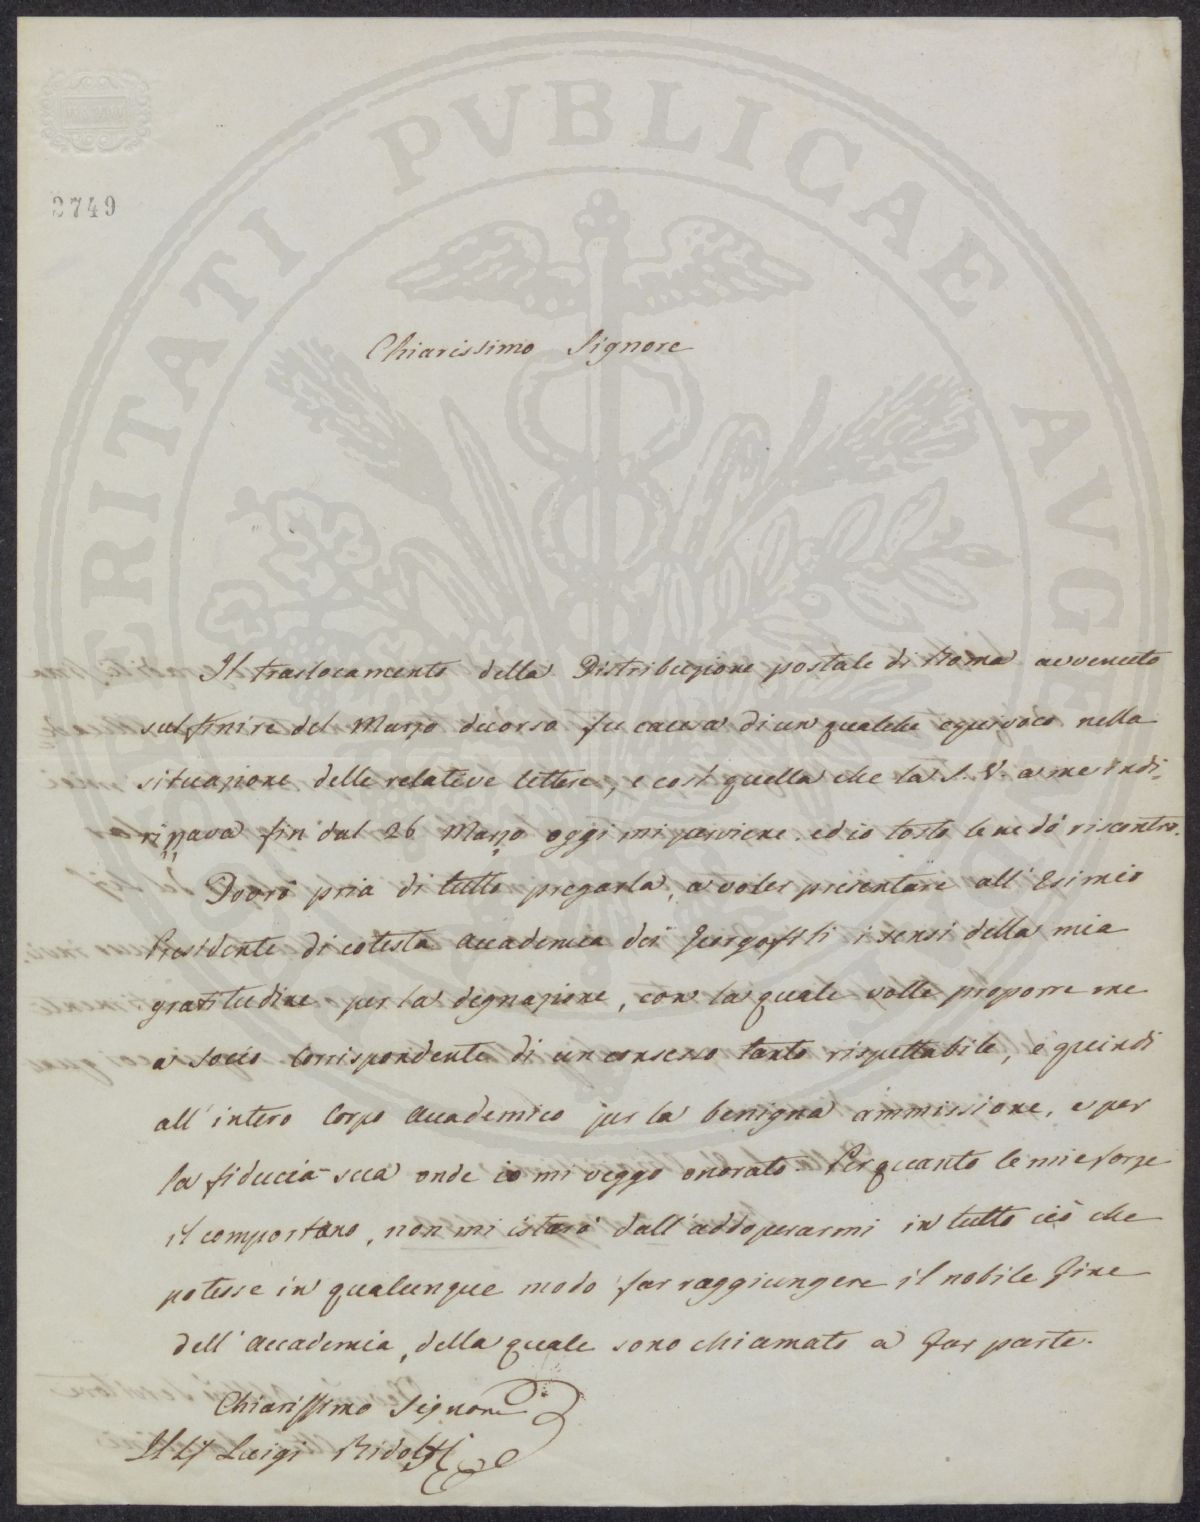 PROSPERITATI PVBLICAE AVGENDAE
2749
Chiarissimo Signore
Il traslocamento della Distribuzione postale di Roma avvenuto
sul finire del Marzo decorso fu causa di un qualche equivoco nella
situazione delle relative lettere, e così quella che la S. V. a me indi-
rizzava fin dal 26 Marzo oggi mi perviene. ed io tosto le ne dò riscontro.
Dovrò pria di tutto pregarla, a voler presentare all'Esimio
Presidente di cotesta Accademia dei Georgofili i sensi della mia
gratitudine per la degnazione, con la quale volle proporre me
a socio Corrispondente di un consesso tanto rispettabile, e quindi
all'intero Corpo Accademico per la benigna ammissione, e per
la fiducia sua onde io mi veggo onorato. Per quanto le mie forze
il comportano, non mi istarò dall'addoperarmi in tutto ciò che
potesse in qualunque modo far raggiungere il nobile fine
dell'Accademia, della quale sono chiamato a far parte.
Chiarissimo Signore
Luigi Ridolfi